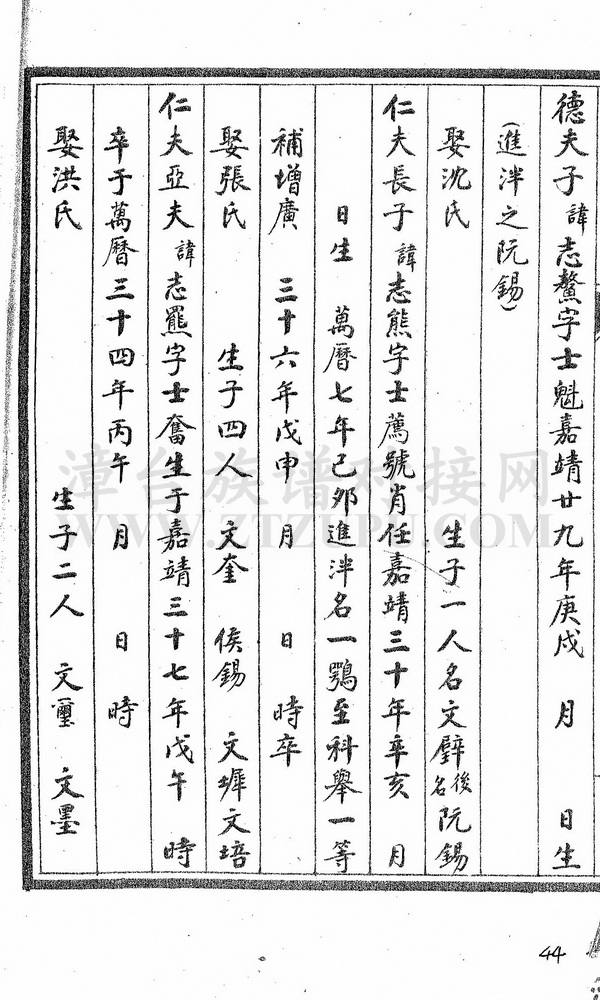 德夫子諱志鰲字士魁嘉靖廿九年庚戌 月 日生
(進泮之阮錫)
娶沈氏 生子一人名文璧後名阮錫
仁夫長子諱志熊字士薦號肖任嘉靖三十年辛亥 月
日生 萬曆七年己夘進泮名一鶚至科舉一等
補增廣 三十六年戊申 月 日 時卒
娶張氏 生子四人 文奎 侯錫 文墀文培
仁夫亞夫諱志羆字士奮生于嘉靖三十七年戊午 時
卒于萬曆三十四年丙午 月 日 時
娶洪氏 生子二人 文璽 文墨
44
漳台族谱对接网
WWW.ZTZUPU.COM